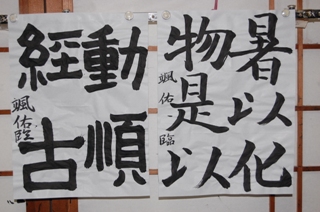 暑以化
物是以
颯佑臨
動順
經古
颯佑臨